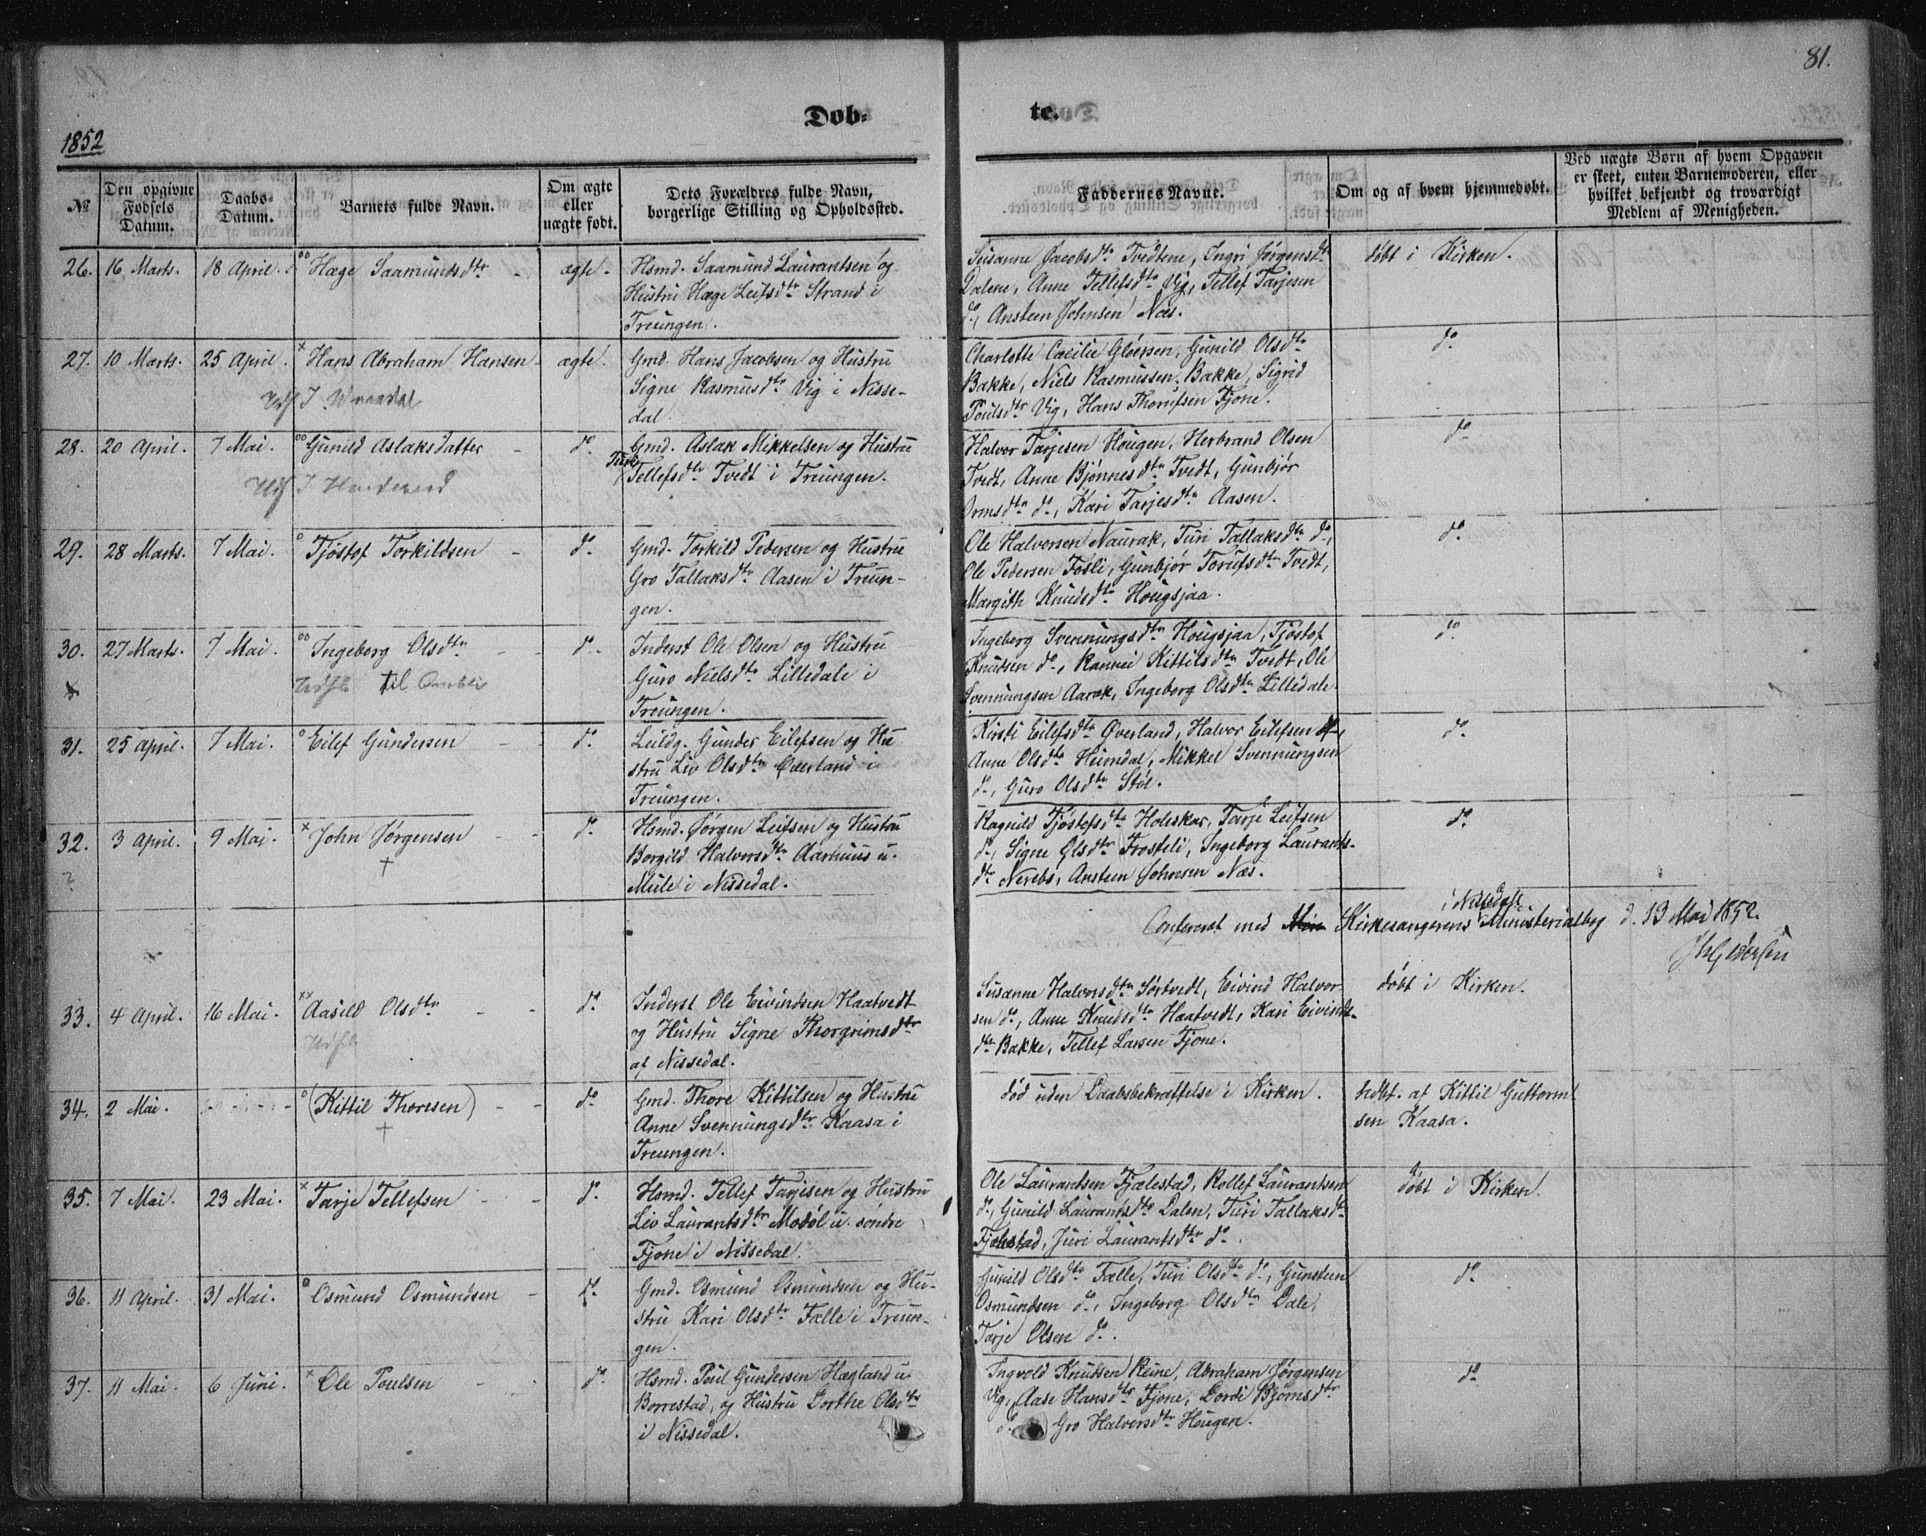 81.
Döb-
te.
1852
№
Den opgivne Fødsels Datum.
Daabs-Datum.
Barnets fulde Navn.
Om ægte eller uægte født.
Dets Forældres fulde Navn, borgerlige Stilling og Opholdssted.
Faddernes Navne.
Om og af hvem hjemmedøbt.
Ved uægte Børn af hvem Opgaven er skeet, enten Barnemoderen, eller hvilket bekjendt og troværdigt Medlem af Menigheden.
26. 16 Marts. 18 April. Hæge Saamundsdtr ægte
Hsmd. Saamund Laurantsen og
Hustru Hæge Leifsdtr Strand i
Treungen.
Susanne Jacobsdtr Tvedtene, Ingri Jørgensdtr
Dalene, Anne Tellefsdtr Vig, Tellef Tarjesen
do, Ansteen Johnsen Næs.
døbt i Kirken.
27. 10 Marts. 25 April. × Hans Abraham Hansen ægte
Udf J Vraadal
Gmd. Hans Jacobsen og Hustru
Signe Rasmusdtr Vig i Nisse-
dal.
Charlotte Cæcilie Gløersen, Gunild Olsdtr
Bakke, Niels Rasmussen Bakke, Sigrid
Poulsdtr Vig, Hans Thorufsen Fjone.
do
28. 20 April. 7 Mai. Gunild Aslaksdatter do
Udf J
Gmd. Aslak Mikkelsen og Hustru
Turi
Tellefsdtr Tvedt i Treungen.
Halvor Tarjesen Hougen, Herbrand Olsen
Tvedt, Anne Bjønnesdtr Tvedt, Gunbjør
Ormsdtr do, Kari Tarjesdtr Aasen.
do
29. 28 Marts. 7 Mai. Tjøstof Torkildsen do
Gmd. Torkild Pedersen og Hustru
Gro Tallaksdtr Aasen i Treun-
gen.
Ole Halvorsen Naurak, Turi Tallaksdtr do,
Ole Pedersen Fosli, Gunbjør Torufsdtr Tvedt,
Margith Knudsdtr Hougsjaa.
do
30. 27 Marts. 7 Mai. Ingeborg Olsdtr do
til Omli
Inderst Ole Olsen og Hustru
Guro Nielsdtr Lilledale i
Treungen.
Ingeborg Svenningsdtr Hougsjaa, Tjøstof
Knudsen do, Rannei Kittilsdtr Tvedt, Ole
Svennungsen Aarak, Ingeborg Olsdtr Lilledale.
do
31. 25 April. 7 Mai. Eilef Gundersen do
Leildg. Gunder Eilefsen og Hu
stru Liv Olsdtr Øverland i
Treungen.
Kirsti Eilefsdtr Øverland, Halvor Eilefsen do,
Anne Olsdtr Heimdal, Mikkel Svennungsen
do, Guro Olsdtr Støl.
do
32. 3 April. 9 Mai. × John Jørgensen do
?
†
Hsmd. Jørgen Leifsen og Hustru
Borgild Halvorsdtr Aarhuus u.
Mule i Nissedal.
Ragnild Tjøstofsdtr Holeskar, Tarje Leifsen
do, Signe Olsdtr Frostli, Ingeborg Laurants-
dtr Nerebø, Ansteen Johnsen Næs.
do
i Nissedal
Confereret med Kirkesangerens Ministerialbog d. 13 Mai 1852.
33. 4 April. 16 Mai. ×× Aasild Olsdtr do
Udf
Inderst Ole Eivindsen Haatvedt
og Hustru Signe Thorgrimsdtr
af Nissedal.
Susanne Halvorsdtr Sørtvedt, Eivind Halvor-
sen do, Anne Knudsdtr Haatvedt, Kari Eivinds-
dtr Bakke, Tellef Larsen Fjone.
døbt i Kirken.
34. 2 Mai. (Kittil Thoresen) do
†
Gmd. Thore Kittilsen og Hustru
Anne Svennungsdtr Kaasa i
Treungen.
død uden Daabsbekræftelse i Kirken.
hdbt. af Kittil Guttorm
sen Kaasa.
35. 7 Mai. 23 Mai. × Tarje Tellefsen do
Hsmd. Tellef Tarjesen og Hustru
Liv Laurantsdtr Modøl u. søndre
Fjone i Nissedal.
Ole Laurantsen Fjælestad, Rollef Laurantsen
do, Gunild Laurantsdtr Dalen, Turi Tallaksdtr
Fjælestad, Juri Laurantsdtr do.
døbt i Kirken
36. 11 April. 31 Mai. Osmund Osmundsen do
Gmd. Osmund Osmundsen og Hu-
stru Kari Olsdtr Fælle i Treun-
gen.
Gunild Olsdtr Fælle, Turi Olsdtr do, Gunsteen
Osmundsen do, Ingeborg Olsdtr Dale,
Tarje Olsen do.
do
37. 11 Mai. 6 Juni. × Ole Poulsen do
Hsmd. Poul Gundersen Hægland u.
Borrestad, og Hustru Dorthe Olsdtr
i Nissedal.
Ingvold Knudsen Reine, Abraham Jørgensen
Vig, Aase Hansdtr Fjone, Dordi Bjørnsdtr
do Gro Halvorsdtr Hougen.
do